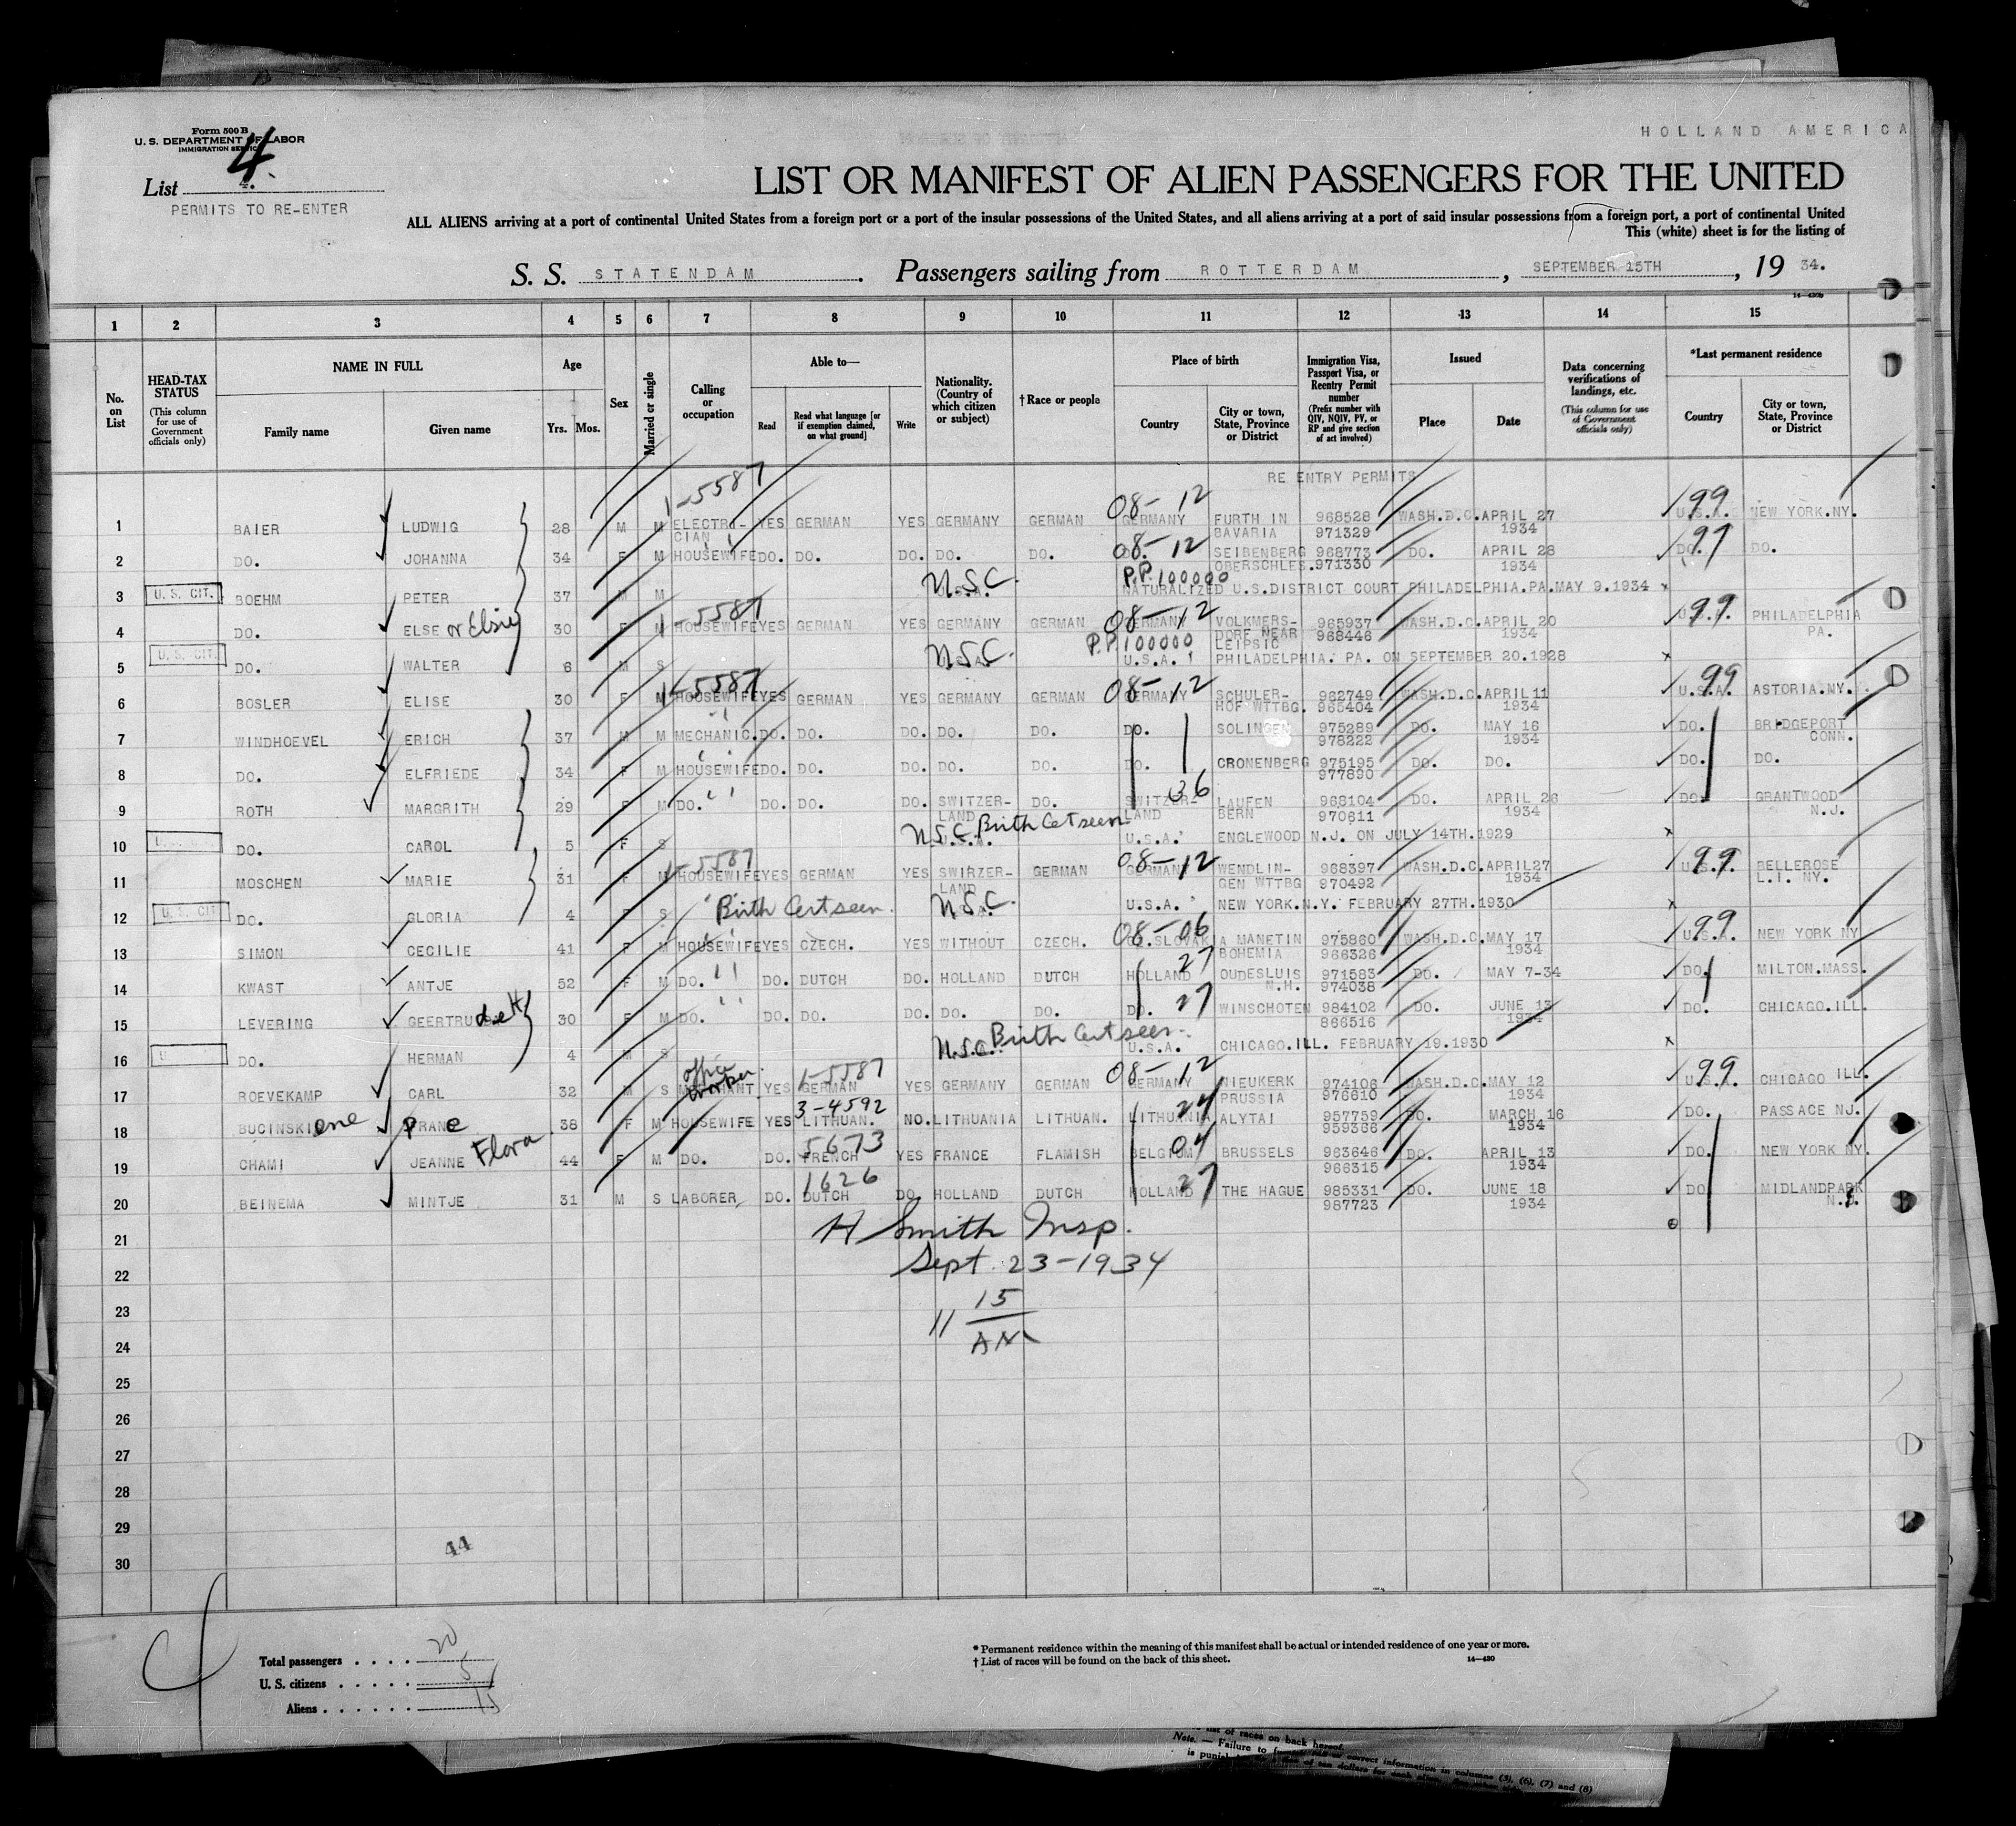 HOLLAND AMERICA
Form 500 B
U. S. DEPARTMENT OF LABOR
IMMIGRATION SERVICE
4.
List 4.
PERMITS TO RE-ENTER
LIST OR MANIFEST OF ALIEN PASSENGERS FOR THE UNITED
ALL ALIENS arriving at a port of continental United States from a foreign port or a port of the insular possessions of the United States, and all aliens arriving at a port of said insular possessions from a foreign port, a port of continental United
This (white) sheet is for the listing of
S. S. STATENDAM. Passengers sailing from ROTTERDAM, SEPTEMBER 15TH, 19 34.
1 2 3 4 5 6 7 8 9 10 11 12 13 14 15
No. on List
HEAD-TAX STATUS (This column for use of Government officials only)
NAME IN FULL Family name Given name
Age Yrs. Mos.
Sex
Married or single
Calling or occupation
Able to— Read Read what language [or if exemption claimed, on what ground] Write
Nationality. (Country of which citizen or subject)
†Race or people
Place of birth Country City or town, State, Province or District
Immigration Visa, Passport Visa, or Reentry Permit number (Prefix number with QIV, NQIV, PV, or RP and give section of act involved)
Issued Place Date
Data concerning verifications of landings, etc. (This column for use of Government officials only)
*Last permanent residence Country City or town, State, Province or District
RE ENTRY PERMITS
1-5587 08-12 99
1 BAIER LUDWIG 28 M M ELECTRI- YES GERMAN YES GERMANY GERMAN GERMANY FURTH IN 968528 WASH.D.C. APRIL 27 U.S.A. NEW YORK.NY.
CIAN BAVARIA 971329 1934
2 DO. JOHANNA 34 F M HOUSEWIFE DO. DO. DO. DO. DO. 08-12 SEIBENBERG 968773 DO. APRIL 28 DO. 99 DO.
OBERSCHLES. 971330 1934
3 U. S. CIT. BOEHM PETER 37 M M U.S.C. P.P. 100000 NATURALIZED U.S.DISTRICT COURT PHILADELPHIA.PA.MAY 9.1934 x
4 DO. ELSE or Elsie 30 F M HOUSEWIFE -5587 YES GERMAN YES GERMANY GERMAN GERMANY 08-12 VOLKMERS- 965937 WASH.D.C. APRIL 20 U.S.A. 99 PHILADELPHIA
DORF NEAR 968446 1934 PA.
LEIPSIC
5 U. S. CIT. DO. WALTER 6 M S U.S.C. P.P. 100000 U.S.A. PHILADELPHIA. PA. ON SEPTEMBER 20.1928 x
6 BOSLER ELISE 30 F M 1-5587 HOUSEWIFE YES GERMAN YES GERMANY GERMAN GERMANY 08-12 SCHULER- 962749 WASH.D.C. APRIL 11 U.S.A. 99 ASTORIA.NY.
HOF WTTBG. 965404 1934
7 WINDHOEVEL ERICH 37 M M MECHANIC. DO. DO. DO. DO. DO. DO. SOLINGEN 975289 DO. MAY 16 DO. BRIDGEPORT
978222 1934 CONN.
8 DO. ELFRIEDE 34 F M HOUSEWIFE DO. DO. DO. DO. DO. DO. CRONENBERG 975195 DO. DO. DO. DO.
977890
9 ROTH MARGRITH 29 F M DO. DO. DO. DO. SWITZER- DO. SWITZER- 36 LAUFEN 968104 DO. APRIL 26 DO. GRANTWOOD
LAND LAND BERN 970611 1934 N.J.
10 DO. CAROL 5 F S U.S.C. Birth Cert seen U.S.A. ENGLEWOOD N.J. ON JULY 14TH.1929 x
11 MOSCHEN MARIE 31 F M 1-5587 HOUSEWIFE YES GERMAN YES SWIRZER- GERMAN GERMANY 08-12 WENDLIN- 968397 WASH.D.C. APRIL27 U.S.A. 99 BELLEROSE
LAND GEN WTTBG 970492 1934 L.I. NY.
12 U. S. CIT DO. GLORIA 4 F S Birth Cert seen. U.S.C. U.S.A. NEW YORK.N.Y. FEBRUARY 27TH.1930 x
13 SIMON CECILIE 41 F M HOUSEWIFE YES CZECH. YES WITHOUT CZECH. CZ.SLOVAKIA 08-06 MANETIN 975860 WASH.D.C. MAY 17 U.S.A. 99 NEW YORK NY
BOHEMIA 966326 1934
14 KWAST ANTJE 52 F M DO. DO. DUTCH DO. HOLLAND DUTCH HOLLAND 27 OUDESLUIS 971583 DO. MAY 7-34 DO. MILTON.MASS.
N.H. 974038
15 LEVERING GEERTRU 30 F M DO. DO. DO. DO. DO. DO. DO. 27 WINSCHOTEN 984102 DO. JUNE 13 DO. CHICAGO.ILL.
866516 1934
16 DO. HERMAN 4 M S U.S.C. Birth Cert seen. U.S.A. CHICAGO.ILL. FEBRUARY 19.1930 x
17 ROEVEKAMP CARL 32 M S office worker. YES GERMAN 1-5587 YES GERMANY GERMAN GERMANY 08-12 NIEUKERK 974106 WASH.D.C. MAY 12 U.S.A. 99 CHICAGO ILL.
PRUSSIA 976610 1934
18 BUCINSKIene PRANe 38 F M HOUSEWIFE YES LITHUAN. 3-4592 NO. LITHUANIA LITHUAN. LITHUANIA 24 ALYTAI 957759 DO. MARCH 16 DO. PASSACE NJ.
959386 1934
19 CHAMI JEANNE Flora 44 F M DO. DO. FRENCH 5673 YES FRANCE FLAMISH BELGIUM 04 BRUSSELS 963646 DO. APRIL 13 DO. NEW YORK NY.
966315 1934
20 BEINEMA MINTJE 31 M S LABORER DO. DUTCH 1626 DO HOLLAND DUTCH HOLLAND 27 THE HAGUE 985331 DO. JUNE 18 DO MIDLANDPARK
987723 1934 N.J.
21 H Smith Insp.
22 Sept. 23-1934
23 11 15
24 AN
25
26
27
28
29
44
30
Total passengers . . . . 20
U. S. citizens . . . . . 5
Aliens . . . . . . 15
* Permanent residence within the meaning of this manifest shall be actual or intended residence of one year or more.
† List of races will be found on the back of this sheet. 14—430
list of races on back hereof.
Note. — Failure to correct information in columns (3), (6), (7) and (8)